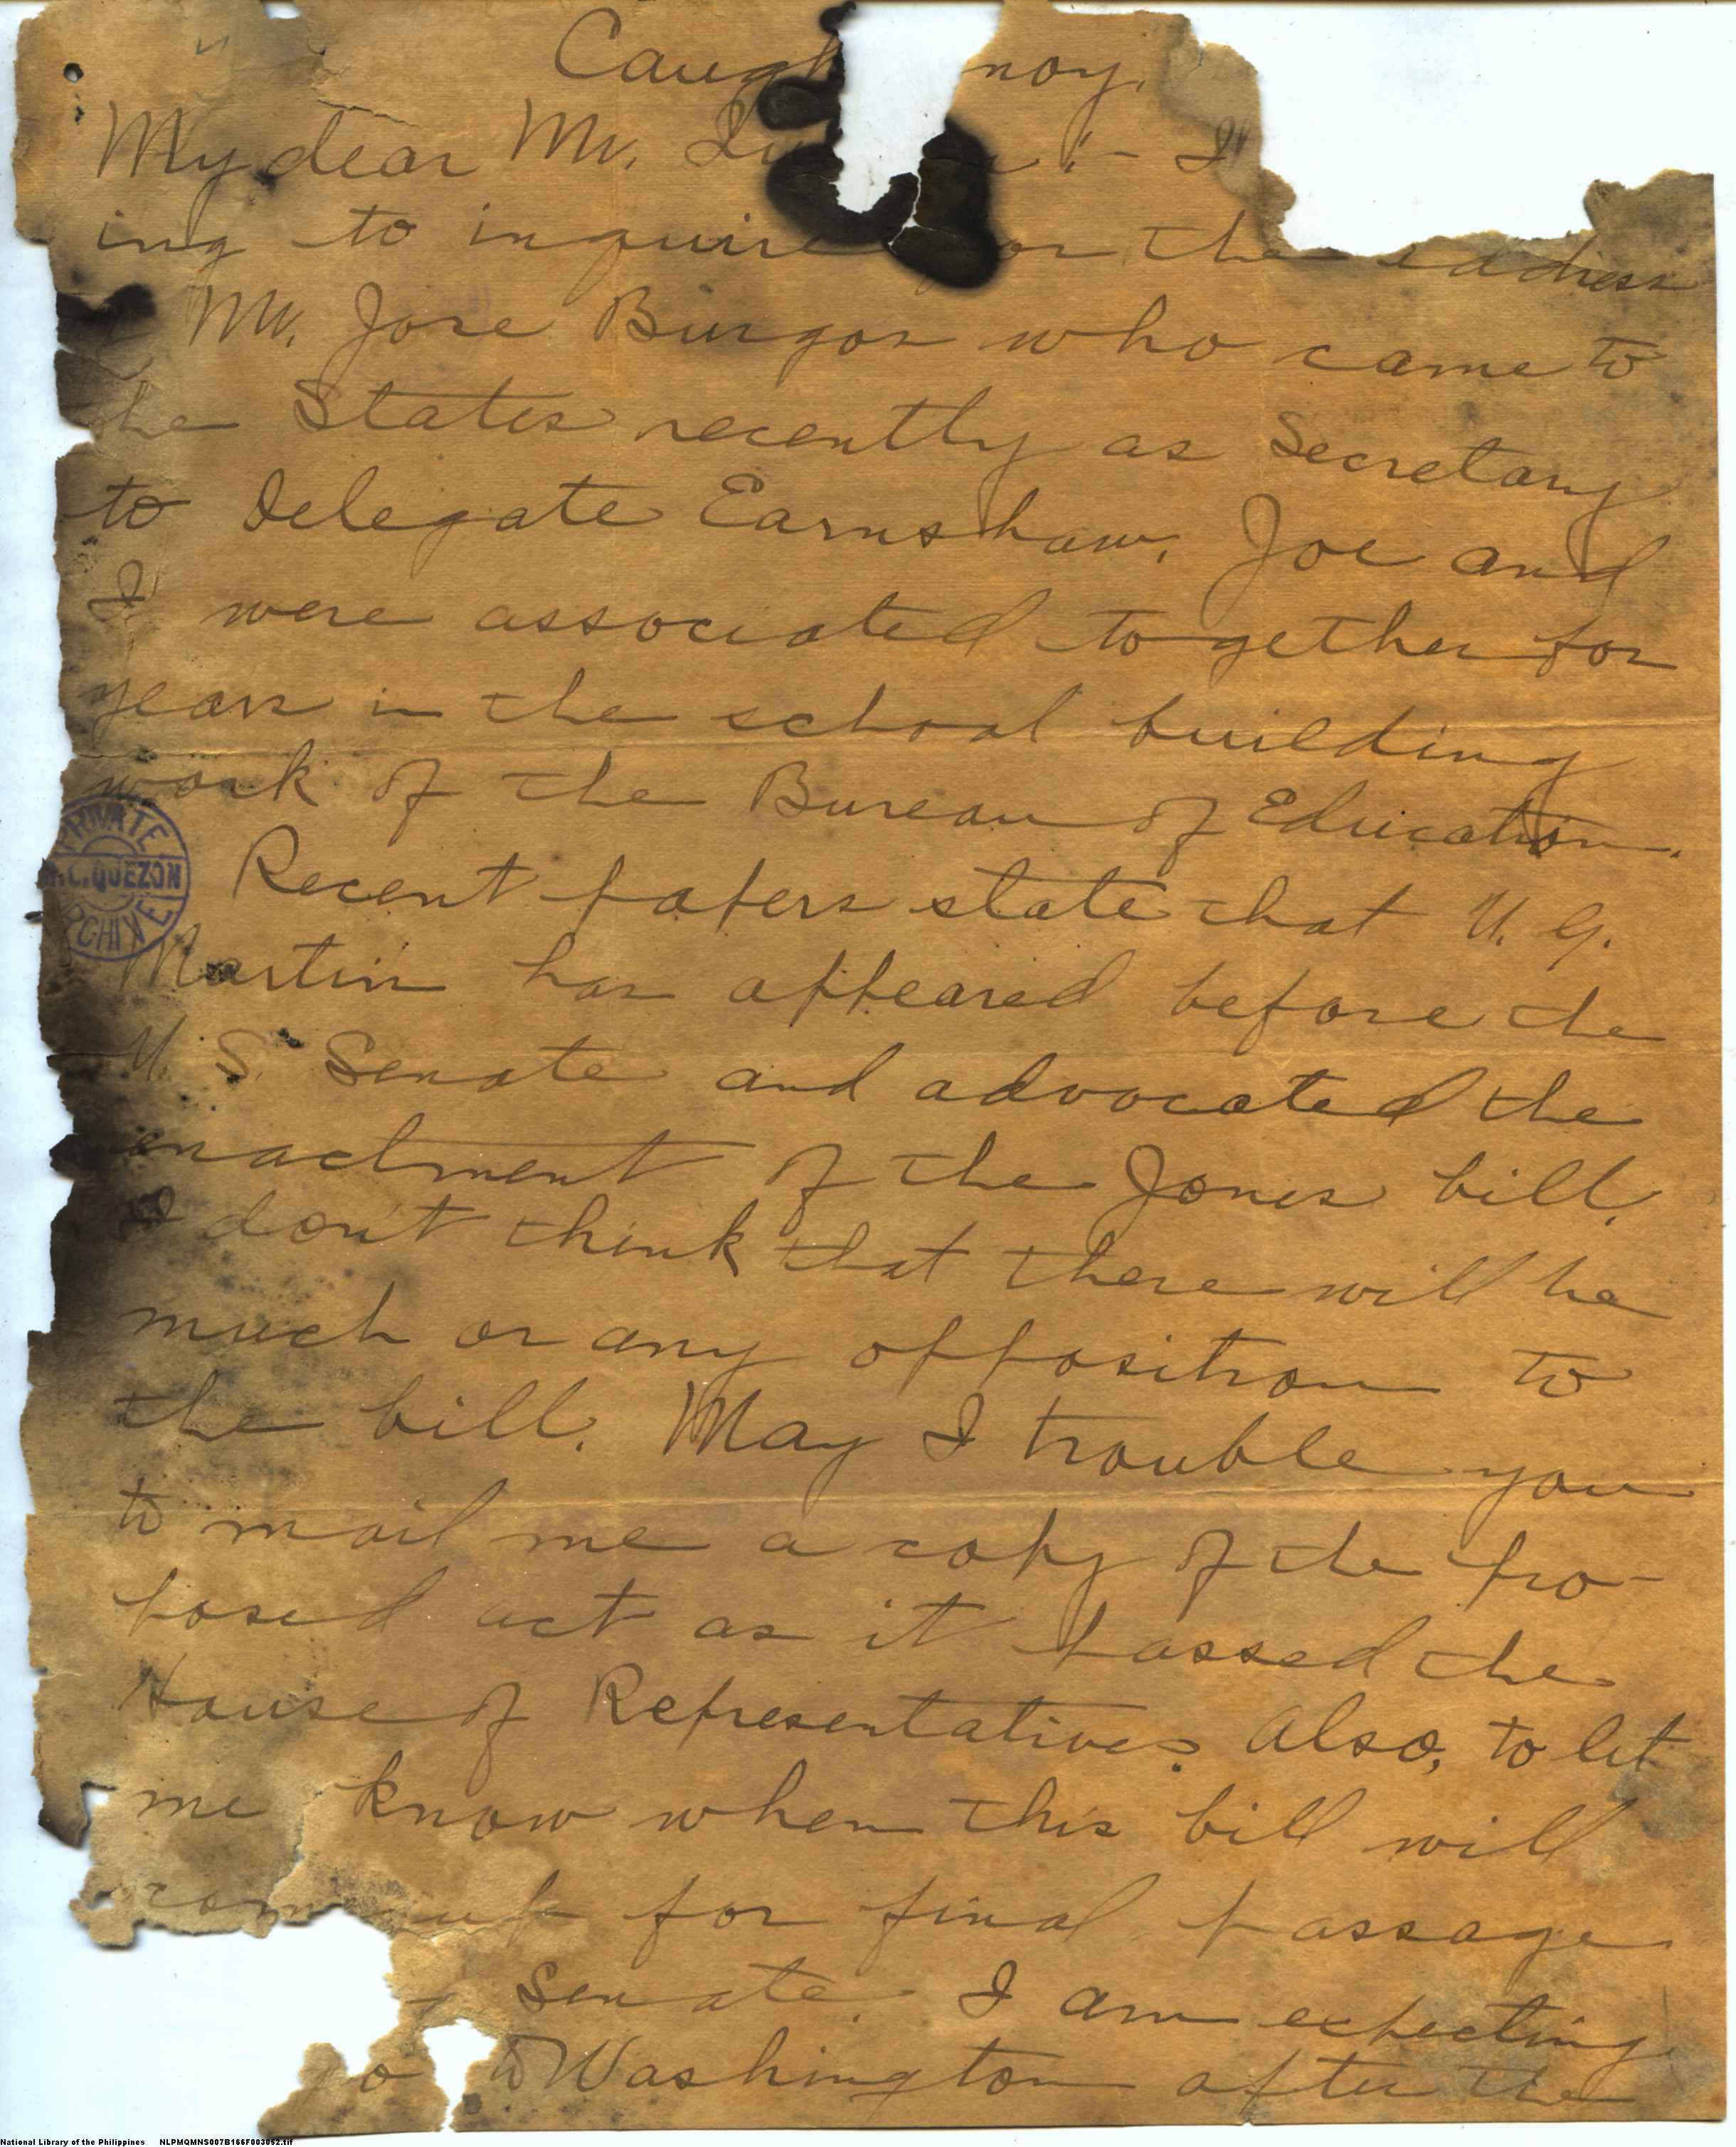 Caugh noy.
My dear Mr. :- I
ing to inquire for the address
Mr. Jose Burgos who came to
he States recently as Secretary
to Delegate Earnshaw. Joe and
I were associated together for
years in the school building
work of the Bureau of Education.
PRIVATE
.L. QUEZON
RCHIVE
Recent papers state that U. G.
Martin has appeared before the
U. S. Senate and advocated the
enactment of the Jones bill.
I don't think that there will be
much or any opposition to
the bill. May I trouble you
to mail me a copy of the pro-
posed act as it passed the
House of Representatives? Also, to let
me know when this bill will
come up for final passage
Senate. I am expecting
go to Washington after the
National Library of the Philippines NLPMQMNS007B166F003062.tif